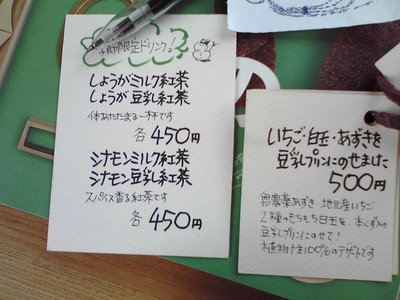 限定ドリンク
しょうがミルク紅茶
しょうが豆乳紅茶
体あたたまる一杯です
各450円
シナモンミルク紅茶
シナモン豆乳紅茶
スパイス香る紅茶です
各450円
いちご・白玉・あずきを
豆乳プリンにのせました
500円
無農薬あずき・地元産いちご
2種のもちもち白玉を 本くずの
豆乳プリンにのせて!
植物性100%のデザートです